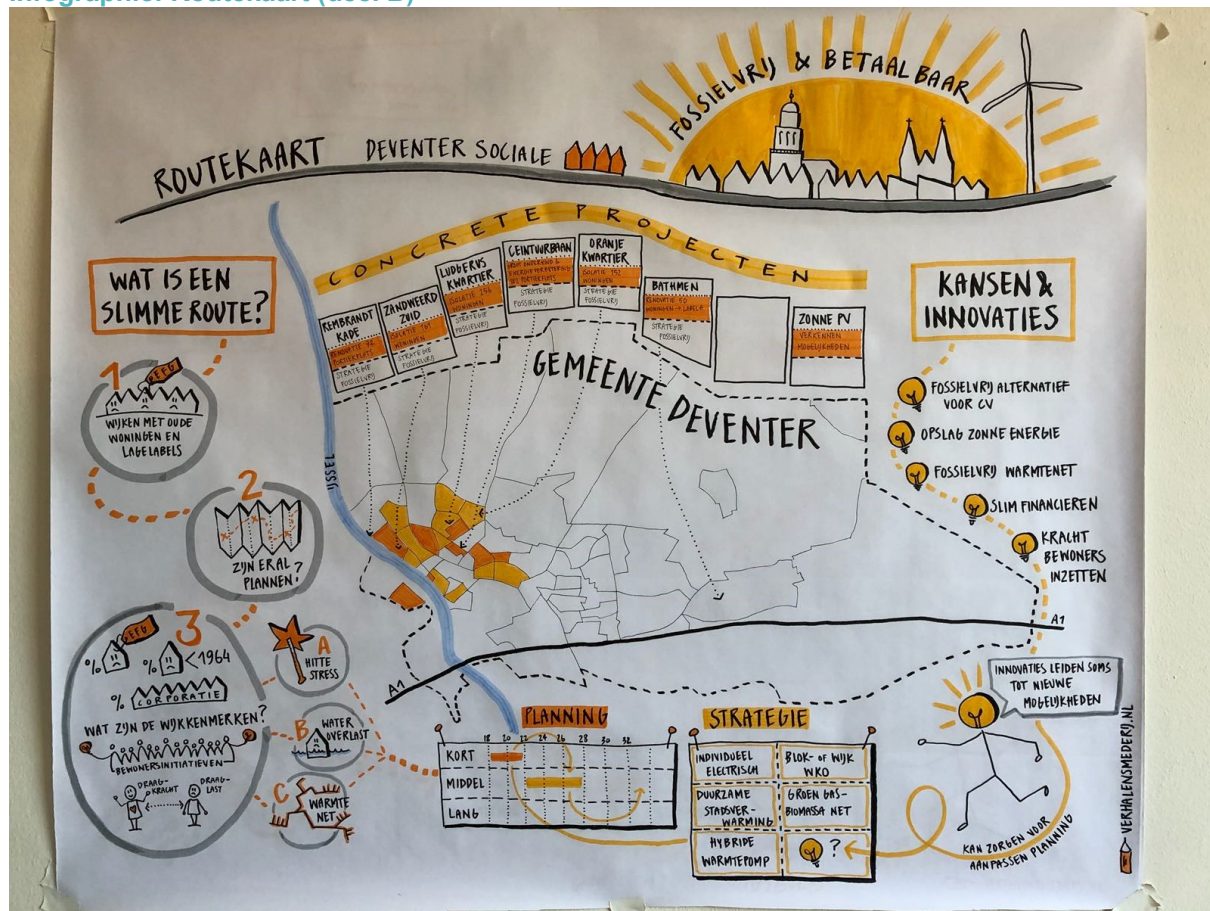 Infographic: Routekaart (deel 2)
FOSSIELVRIJ & BETAALBAAR
ROUTEKAART DEVENTER SOCIALE
CONCRETE PROJECTEN
WAT IS EEN
SLIMME ROUTE?
1
EEFG
WIJKEN MET OUDE
WONINGEN EN
LAGE LABELS
2
ZIJN ER AL
PLANNEN?
3
EEFG
% % <1964
% CORPORATIE
WAT ZIJN DE WIJKKENMERKEN?
BEWONERSINITIATIEVEN
DRAAG-
KRACHT
DRAAG-
LAST
A
HITTE
STRESS
B
WATER
OVERLAST
C
WARMTE
NET
REMBRANDT
KADE
RENOVATIE 72
PORTIEKFLATS
STRATEGIE
FOSSIELVRIJ
ZANDWEERD
ZUID
ISOLATIE
WONINGEN
STRATEGIE
FOSSIELVRIJ
LUDGERUS
KWARTIER
ISOLATIE 154
WONINGEN
STRATEGIE
FOSSIELVRIJ
CEINTUURBAAN
GROOT ONDERHOUD &
ENERGIEVERBETERING
PORTIEKFLATS
STRATEGIE
FOSSIELVRIJ
ORANJE
KWARTIER
ISOLATIE 152
WONINGEN
STRATEGIE
FOSSIELVRIJ
BATHMEN
RENOVATIE 50
WONINGEN → LABEL A
STRATEGIE
FOSSIELVRIJ
ZONNE PV
VERKENNEN
MOGELIJKHEDEN
GEMEENTE DEVENTER
IJSSEL
A1
A1
KANSEN &
INNOVATIES
FOSSIELVRIJ ALTERNATIEF
VOOR CV
OPSLAG ZONNE ENERGIE
FOSSIELVRIJ WARMTENET
SLIM FINANCIEREN
KRACHT
BEWONERS
INZETTEN
INNOVATIES LEIDEN SOMS
TOT NIEUWE
MOGELIJKHEDEN
KAN ZORGEN VOOR
AANPASSEN PLANNING
PLANNING
18 20 22 24 26 28 30 32
KORT
MIDDEL
LANG
STRATEGIE
INDIVIDUEEL
ELECTRISCH
BLOK- OF WIJK
WKO
DUURZAME
STADSVER-
WARMING
GROEN GAS-
BIOMASSA NET
HYBRIDE
WARMTEPOMP
?
VERHALENSMEDERIJ.NL